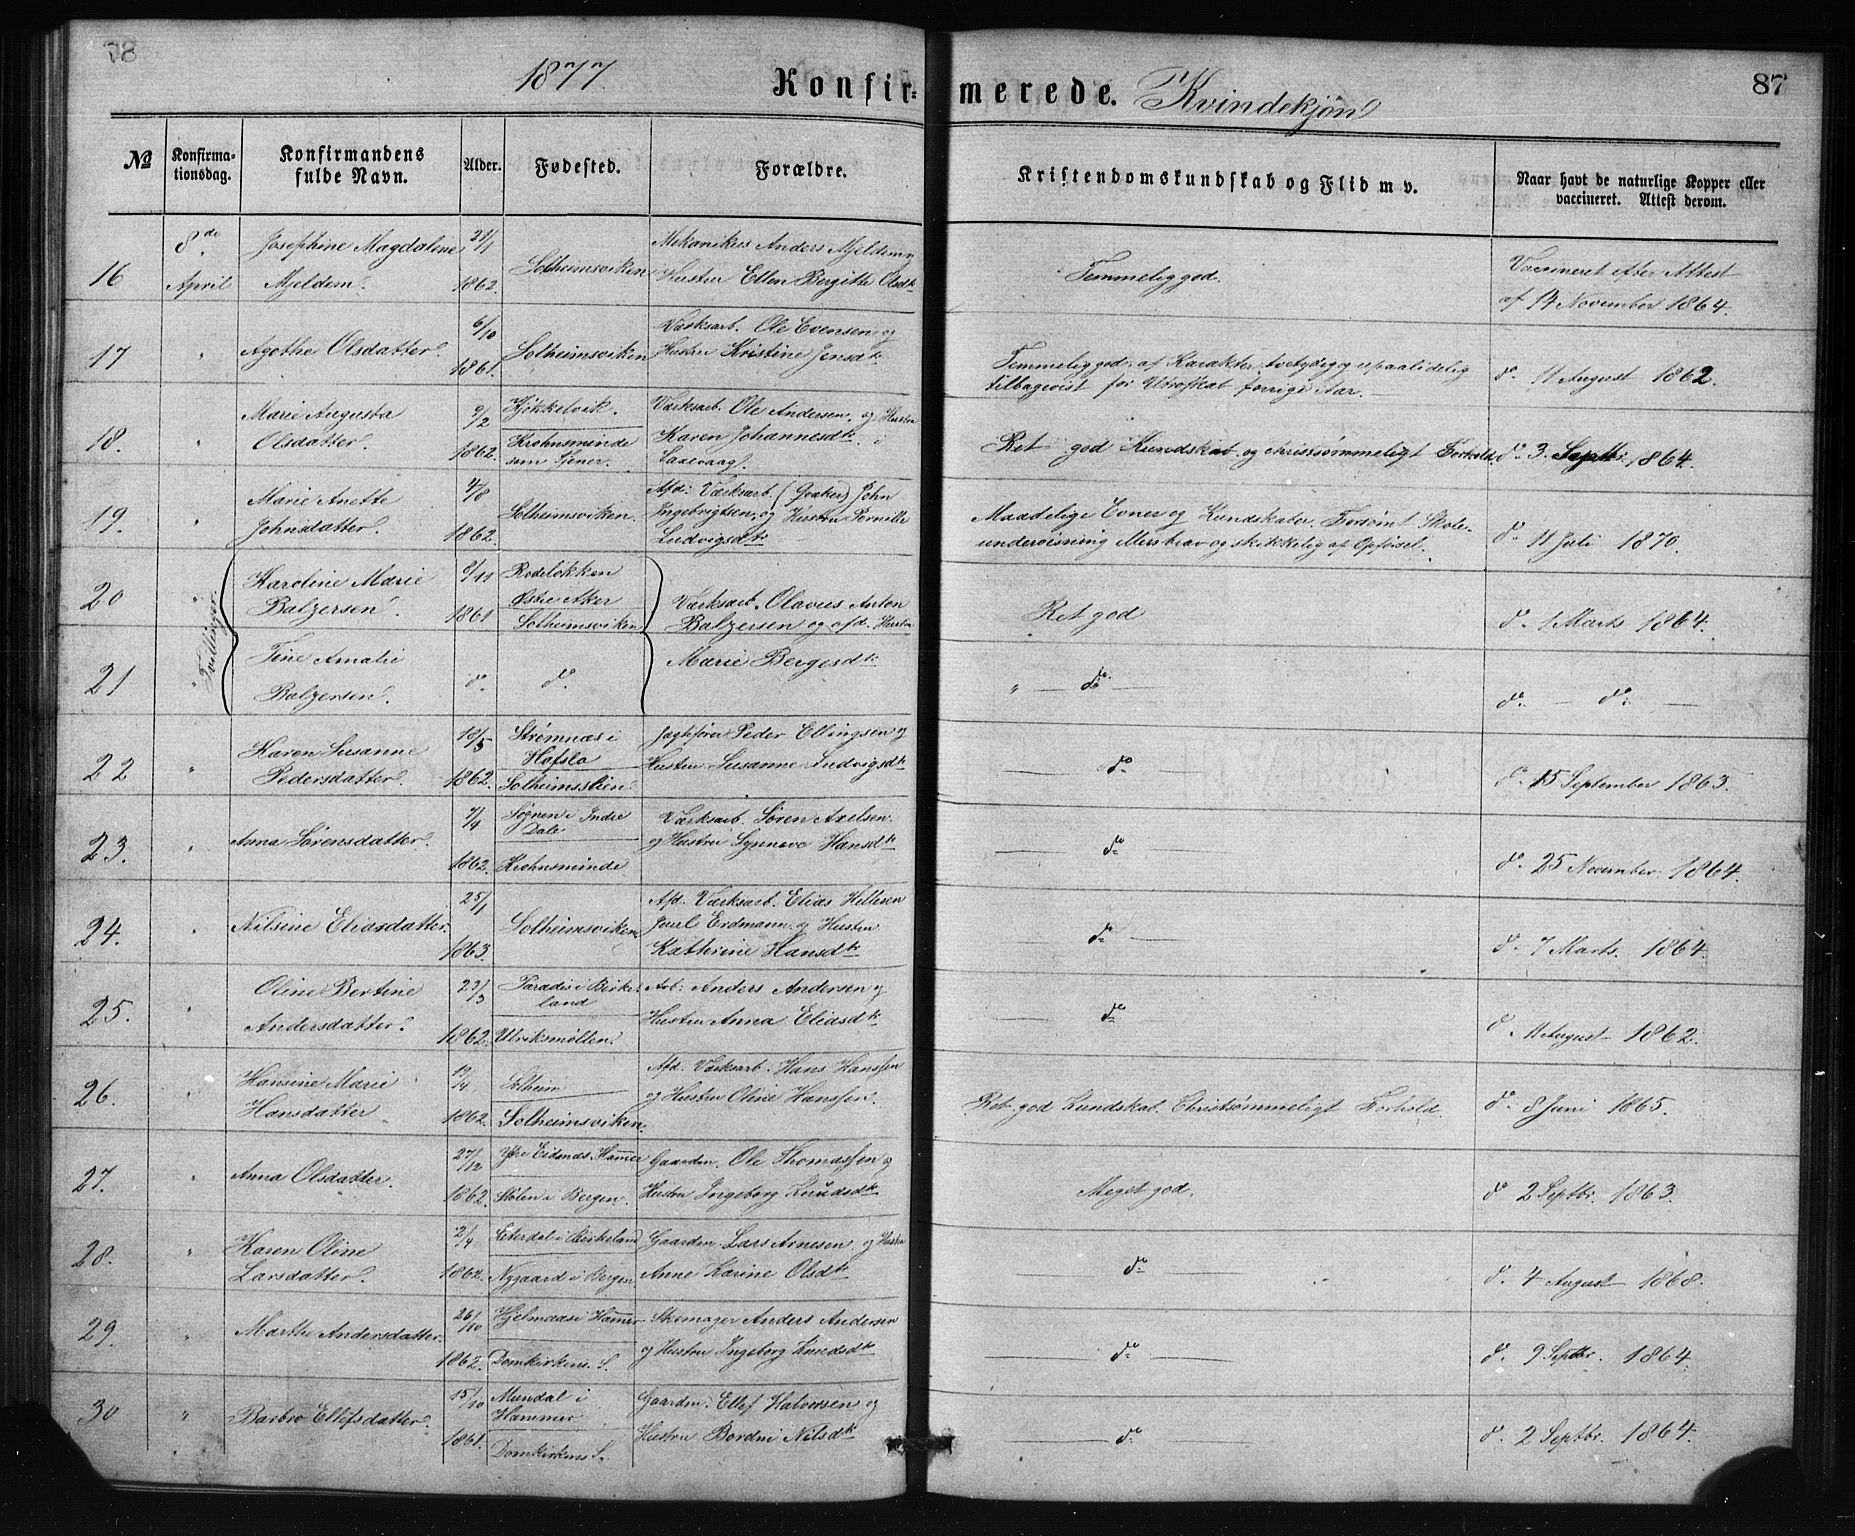 1877. Konfirmerede. Kvindekjøn 87
No Konfirmationsdag. Konfirmandens fulde Navn. Alder. Fødested. Forældre. Kristendomskundskab og Flid m v. Naar havt de naturlige Kopper eller vaccineret. Attest derom.
16 8de April Josephine Magdalene Mjeldem. 1862. Solheimsviken Mekanikus Anders Mjeldem og Hustru Ellen Bergitte Olsdtr Temmelig god. Vaccineret efter Attest af 14 November 1864.
17 " Agathe Olsdatter. 6/10 1861. Solheimsviken Værksarb. Ole Evensen og Hustru Kristine Jensdtr Temmelig god, af Karakter tvetydig og upaalidelig tilbagevist for Utroskab forrige Aar. do 11 August 1862.
18. " Marie Augusta Olsdatter. 9/2 1862. Kjøkkelvik. Krohnsminde som Tjener. Værksarb. Ole Andersen, og Hustru Karen Johannesdtr. i Laxevaag. Ret god Kundskab og christsømmeligt Forhold. do 3. Septbr. 1864.
19. " Marie Anette Johnsdatter. 4/8 1862. Solheimsviken. Afd: Værksarb. John Ingebrigtsen, og Hustru Pernille Ludvigsdtr Maadelige Evner og Kundskaber. Forsømt Skoleundervisning og skikkelig af Opførsel. do 11 Juli 1870.
20 " Tvillinger. Karoline Marie Balzersen. 8/11 1861 Rodeløkken Østre Aker Solheimsviken Værksarb. Olavus Anton Balzersen og afd. Hustru Marie Bergesdtr Ret god do 1 Marts 1864.
21 " Tine Amalie Balzersen. do do " do do do
22 " Karen Susanne Pedersdatter. 18/5 1862. Strømnæs i Hafslo Solheimsslien. Jagtfører Peder Ellingsen og Hustru Susanne Ludvigsdtr do do 15 September 1863.
23. " Anna Sørensdatter. 7/4 1862. Sognen i Indre Dale Krohnsminde Værksarb. Søren Axelsen og Hustru Synneve Hansdtr do do 25 November 1864.
24. " Nilsine Eliasdatter. 25/1 1863. Solheimsviken Afd. Værksarb. Elias Hellesen Juul Erdmann og Hustru Kathrine Hansdtr do do 7 Marts. 1864.
25. " Oline Bertine Andersdatter. 23/3 1862. Paradis i Birkeland Ulriksmølten. Arb: Anders Andersen og Hustru Anna Eliasdtr do do 11 August 1862.
26. " Hansine Marie Hansdatter 1862. Solheim Solheimsviken. Afd. Værksarb. Hans Hanssen og Hustru Oline Hanssen. Ret god Kundskab. Christsømmeligt Forhold. do 8 Juni 1865.
27. " Anna Olsdatter. 27/12 1862. Ytre Eidsnæs Hammer Stølen i Bergen. Gaardm. Ole Thomassen og Hustru Ingeborg Knudsdtr Meget god. do 2 Septbr. 1863.
28. " Karen Oline Larsdatter. 2/4 1862. Sæterdal i Birkeland Nygaard i Bergen Gaardm Lars Arnesen og Hustru Anne Karine Olsdtr do do 4 August 1868.
29. " Marthe Andersdatter. 26/10 1862. Hjelmaas i Hammer Domkirkens S. Skomager Anders Andersen og Hustru Ingeborg Knudsdtr do do 9 Septbr. 1864.
30 " Barbro Ellefsdatter. 15/10 1861. Mundal i Hammer Domkirkens S. Gaardm. Ellef Halvorsen og Hustru Bordni Nilsdtr do do 2 Septbr. 1864.